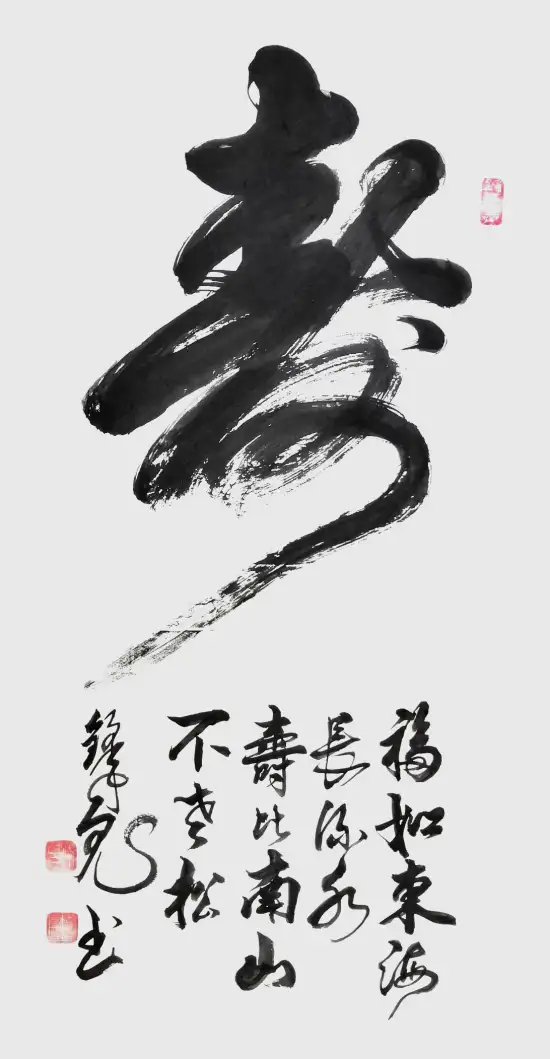 壽
福如東海
長流水
壽比南山
不老松
書